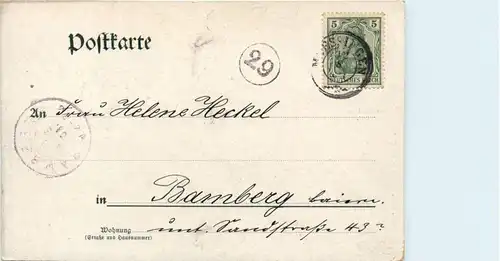 Postkarte
29
5 5
An Frau Helene Heckel
in Bamberg baiern.
Wohnung unt. Sandstraße 43
(Straße und Hausnummer)